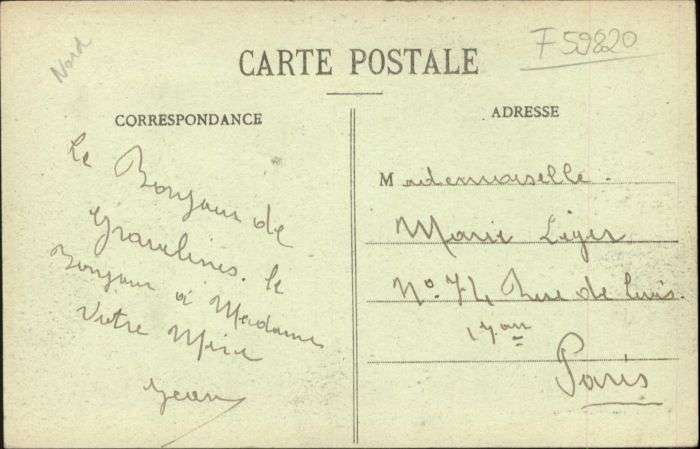 Nord
F 59820
CARTE POSTALE
CORRESPONDANCE
Le Bonjour de
Gravelines. le
Bonjour à Madame
Votre Mère
Jean
ADRESSE
Mademoiselle.
Marie Léger
N° 74, Rue de
17
Paris